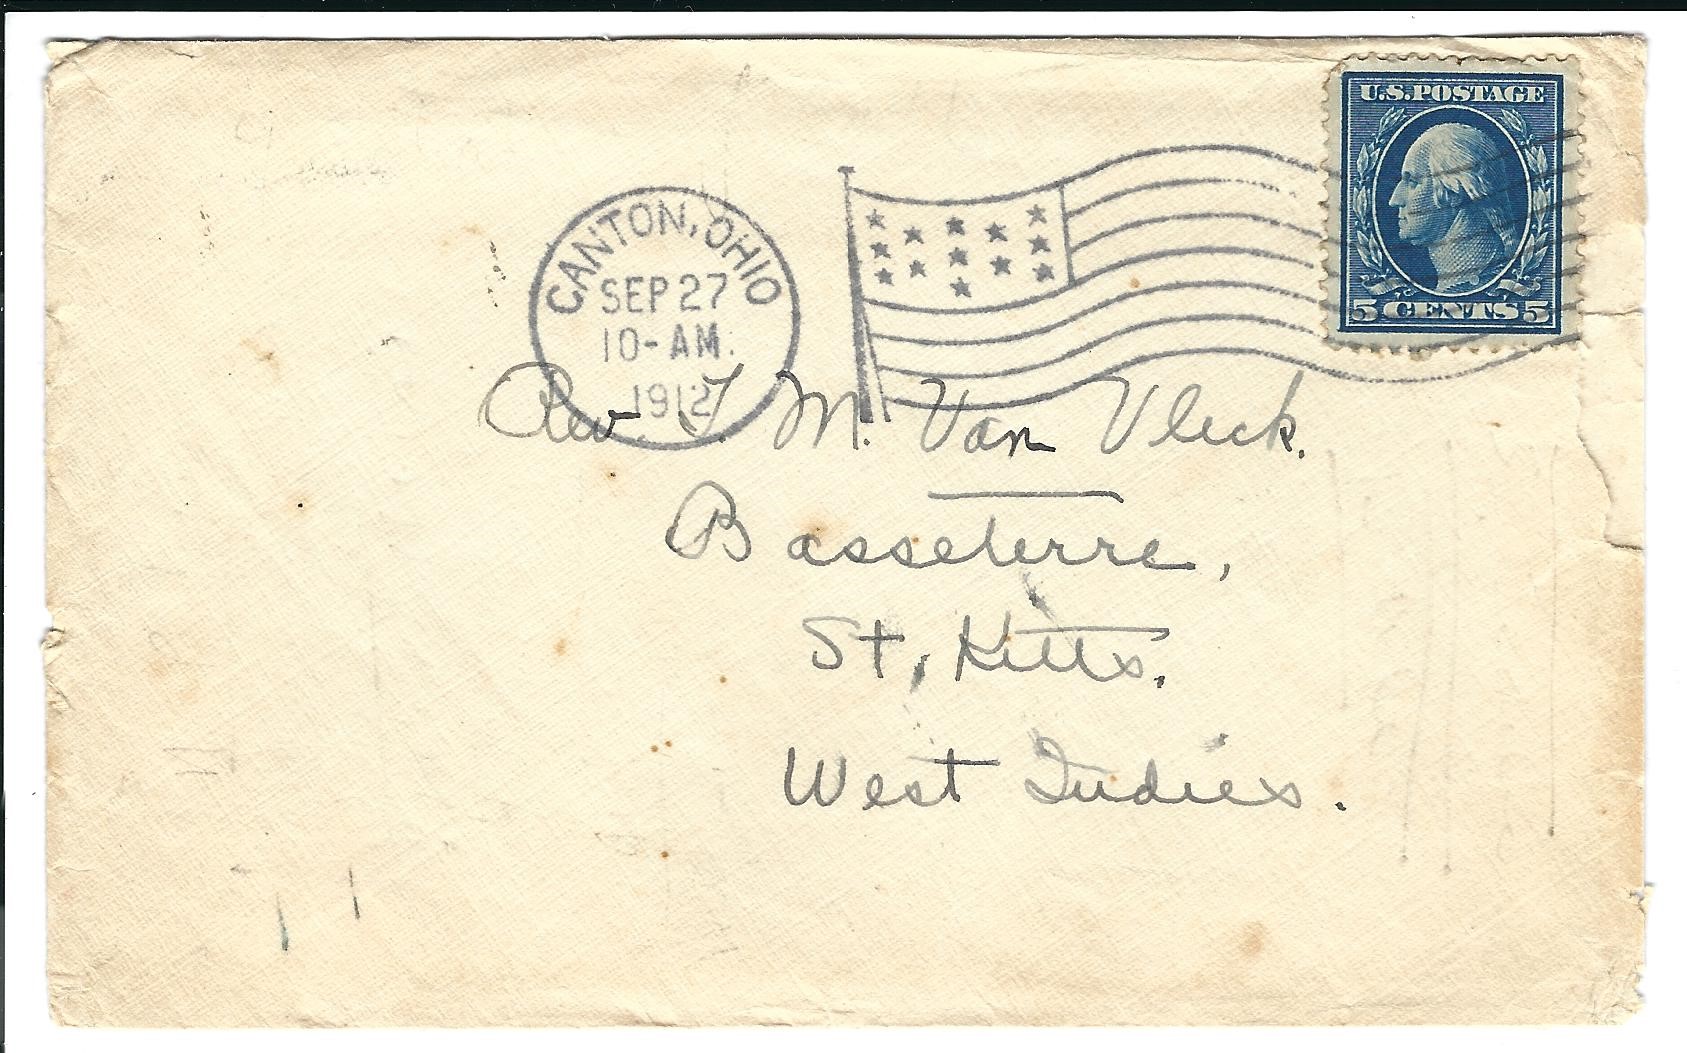 U.S. POSTAGE
5 CENTS 5
CANTON, OHIO
SEP 27
10-AM.
1912
Rev. T. M. Van Vleck.
Basseterre,
St, Kitts.
West Indies.